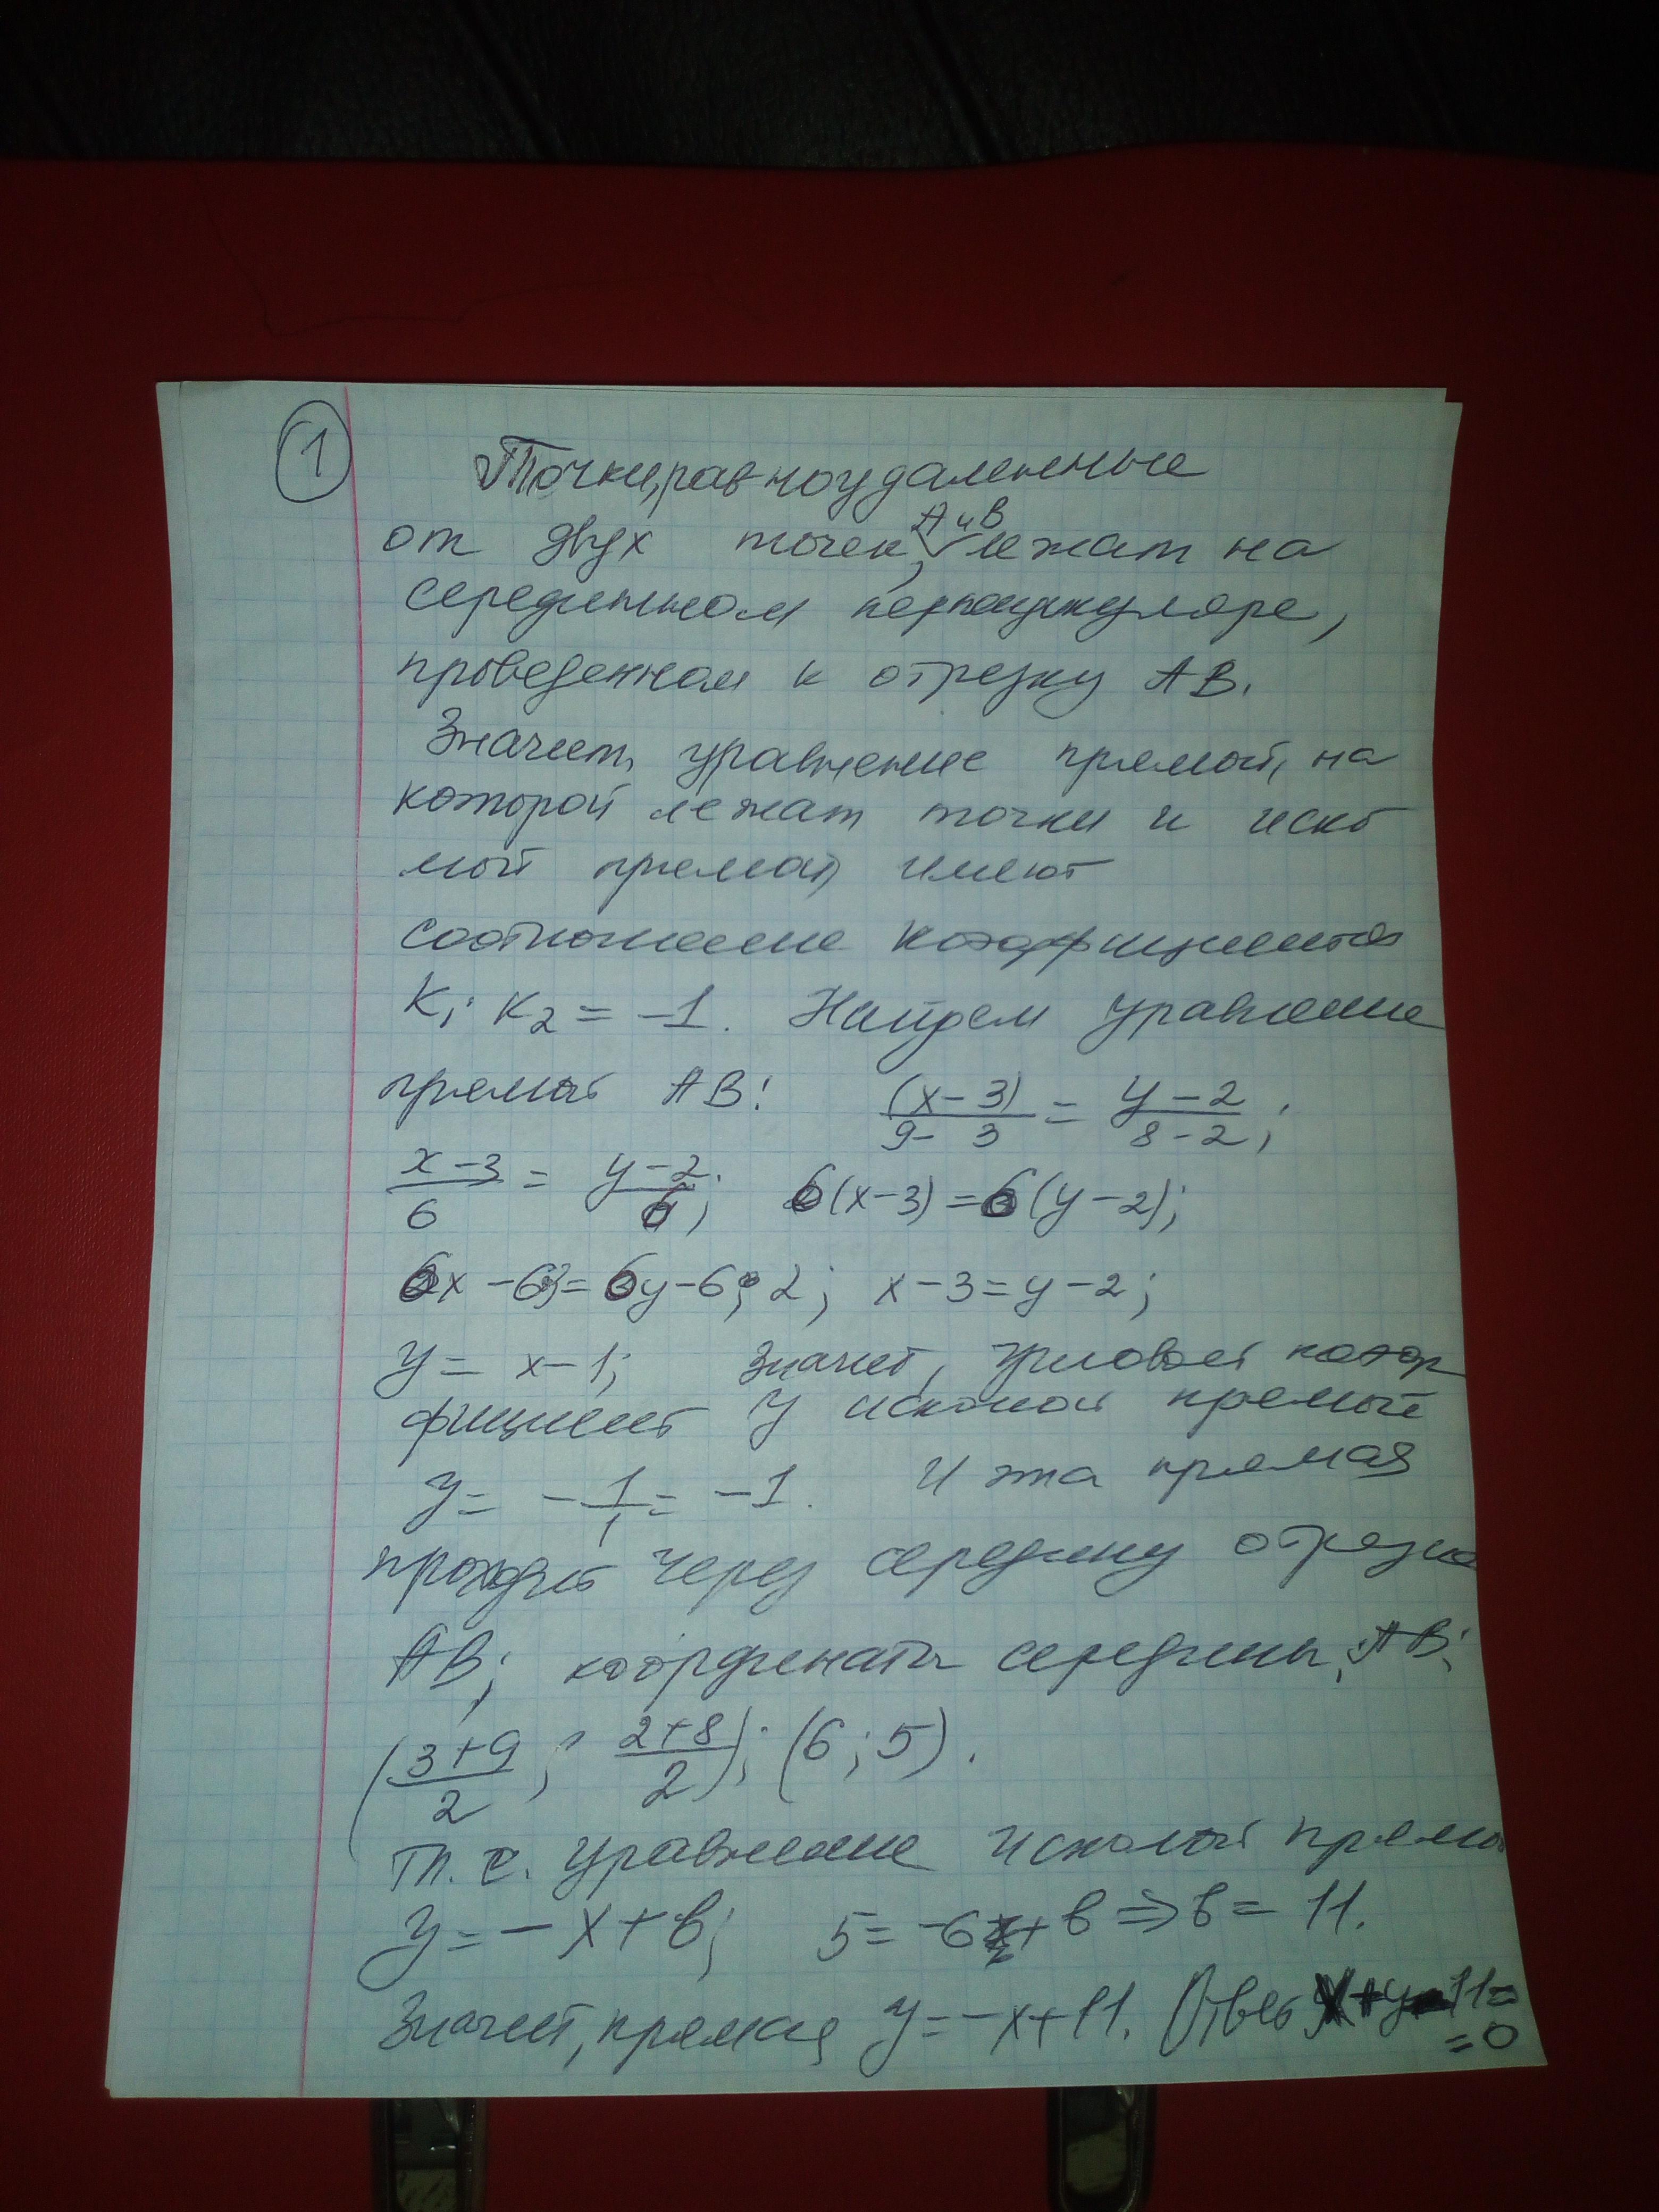 1
Точки, равноудаленные
от двух точек, А и В лежат на
серединном перпендикуляре,
проведенном к отрезку АВ.
Значит, уравнение прямой, на
которой лежат точки и иско
мой прямой имеют
соотношение коэффициентов
K₁ · K₂ = -1. Найдем уравнение
прямой АВ:  (x-3)/(9-3) = (y-2)/(8-2);
(x-3)/6 = (y-2)/6;  6(x-3)=6(y-2);
6x-6·3=6y-6·2; x-3=y-2;
y= x-1; Значит, угловой коэф
фициент у искомой прямой
y= -1/1 = -1. И эта прямая
проходит через середину отрезка
АВ; координаты середины АВ:
((3+9)/2; (2+8)/2); (6;5).
Т.е. уравнение искомой прямой
y=-x+b; 5=-6+b ⇒ b= 11.
Значит, прямая y=-x+11. Ответ x+y-11=
=0